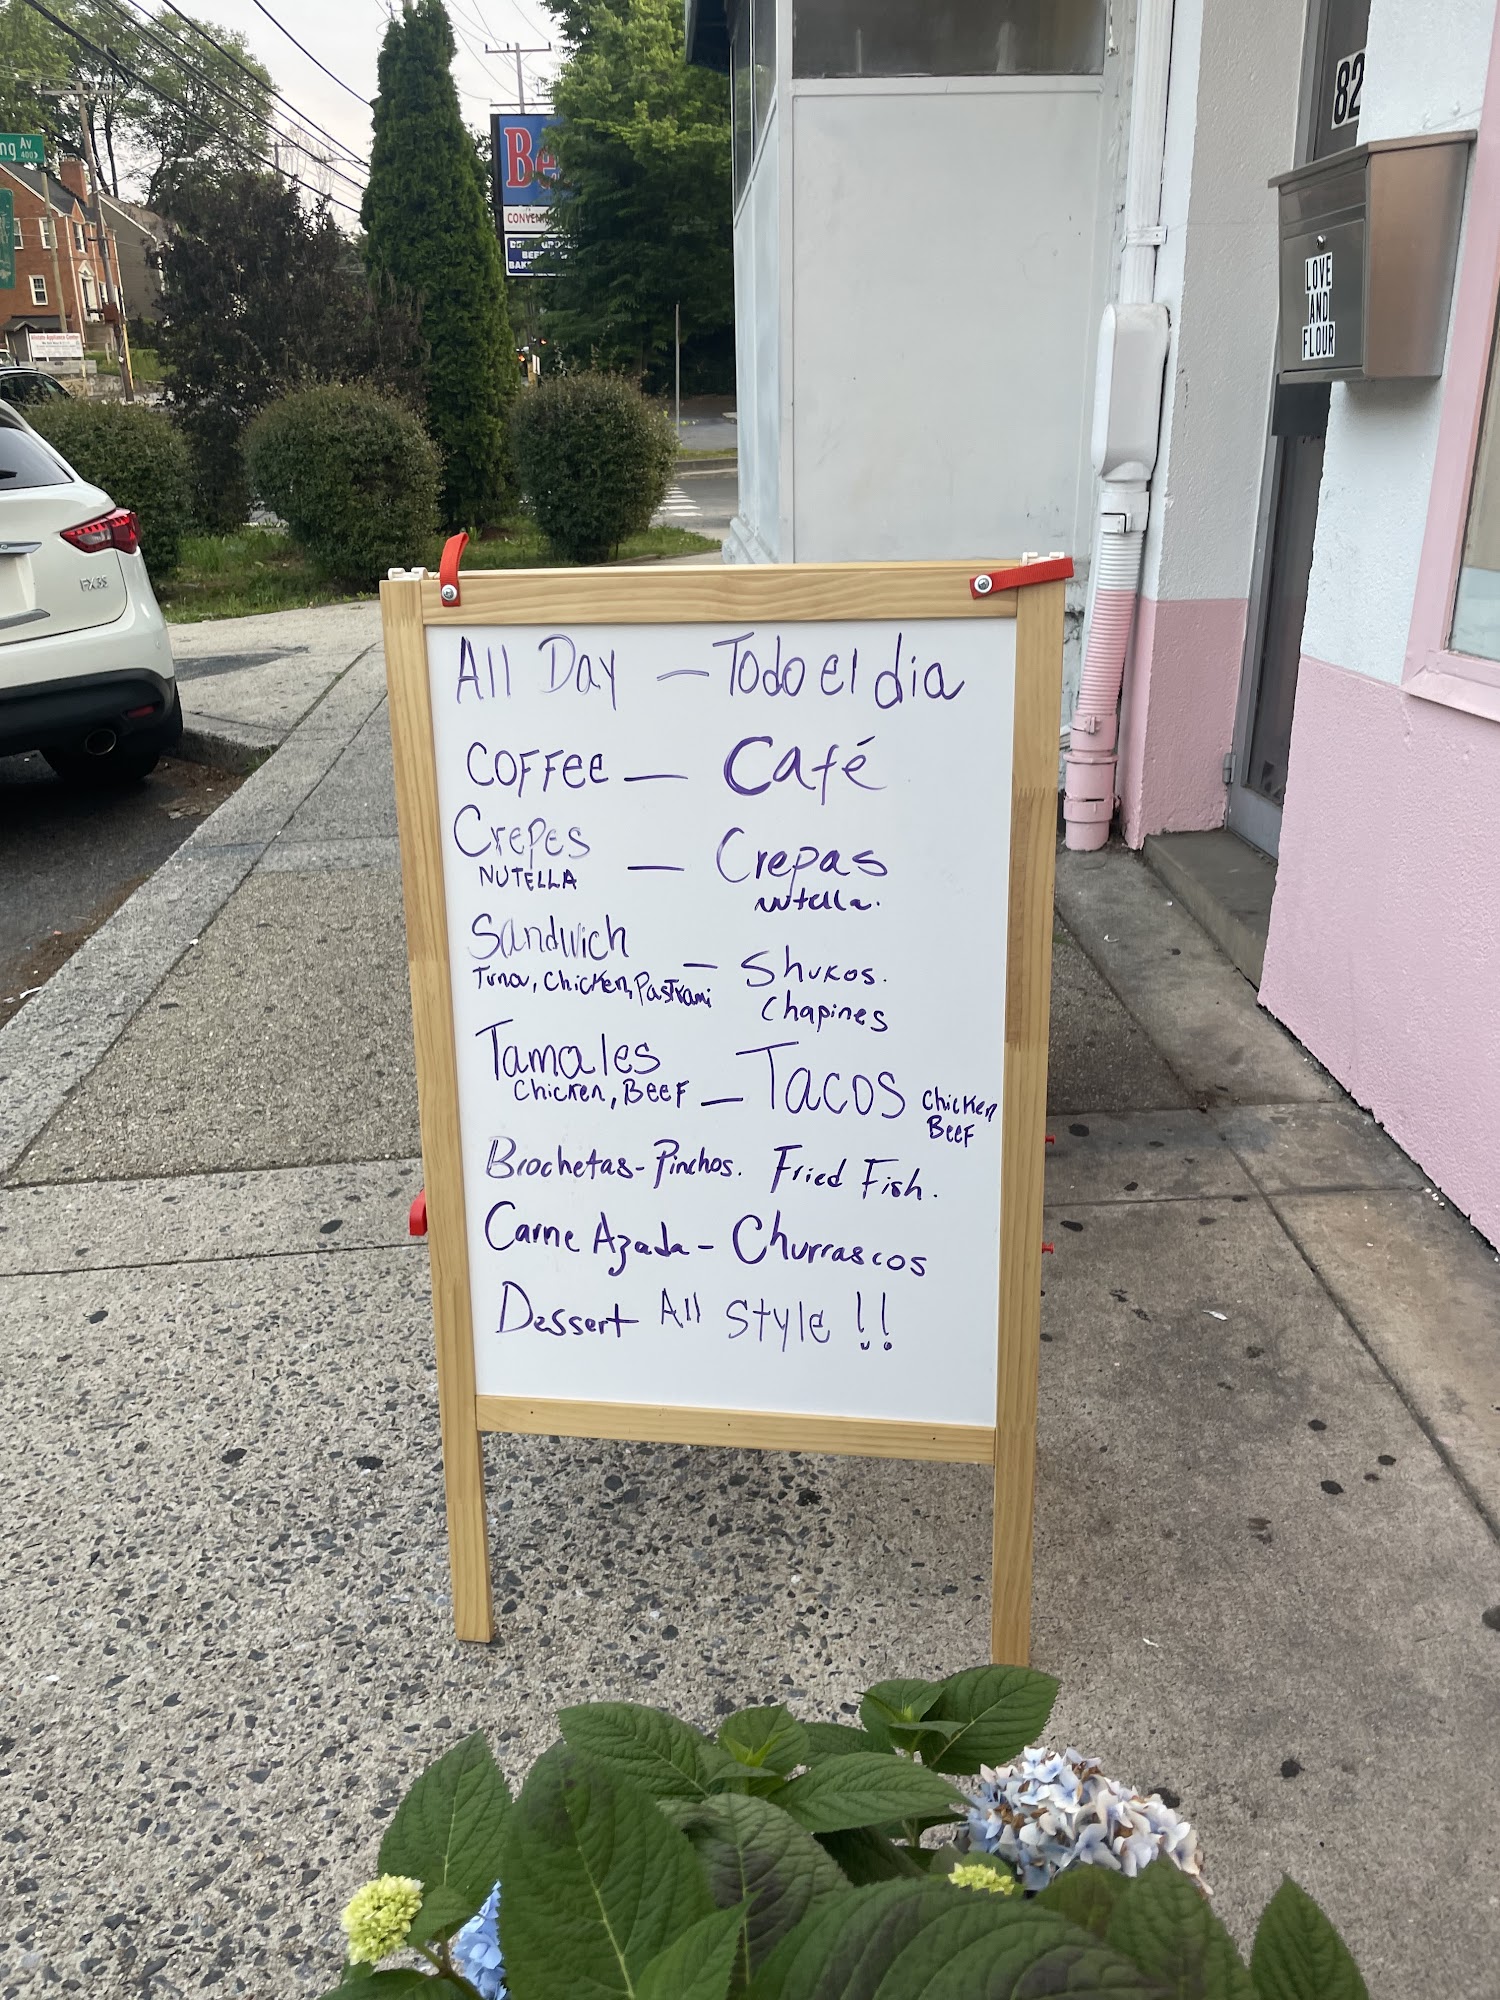 ng AV
400
Be
CONVEN
BEE
BAK
82
LOVE
AND
FLOUR
FX35
All Day — Todo el dia
COFFEE — Café
Crepes — Crepas
NUTELLA nutella.
Sandwich — Shukos.
Tuna, Chicken, Pastrami Chapines
Tamales — Tacos Chicken
Chicken, Beef Beef
Brochetas - Pinchos. Fried Fish.
Carne Azada - Churrascos
Dessert All Style !!